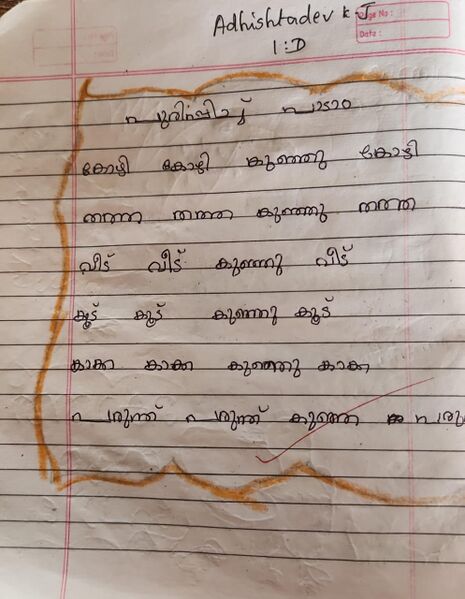 Adhishtadev k J
1:D
Page No :
Date :
പൂരിപ്പിച്ച് പാടാം
കോഴി കോഴി കുഞ്ഞു കോഴി
തത്ത തത്ത കുഞ്ഞു തത്ത
വീട് വീട് കുഞ്ഞു വീട്
കൂട് കൂട് കുഞ്ഞു കൂട്
കാക്ക കാക്ക കുഞ്ഞു കാക്ക
പരുന്ത് പരുന്ത് കുഞ്ഞു